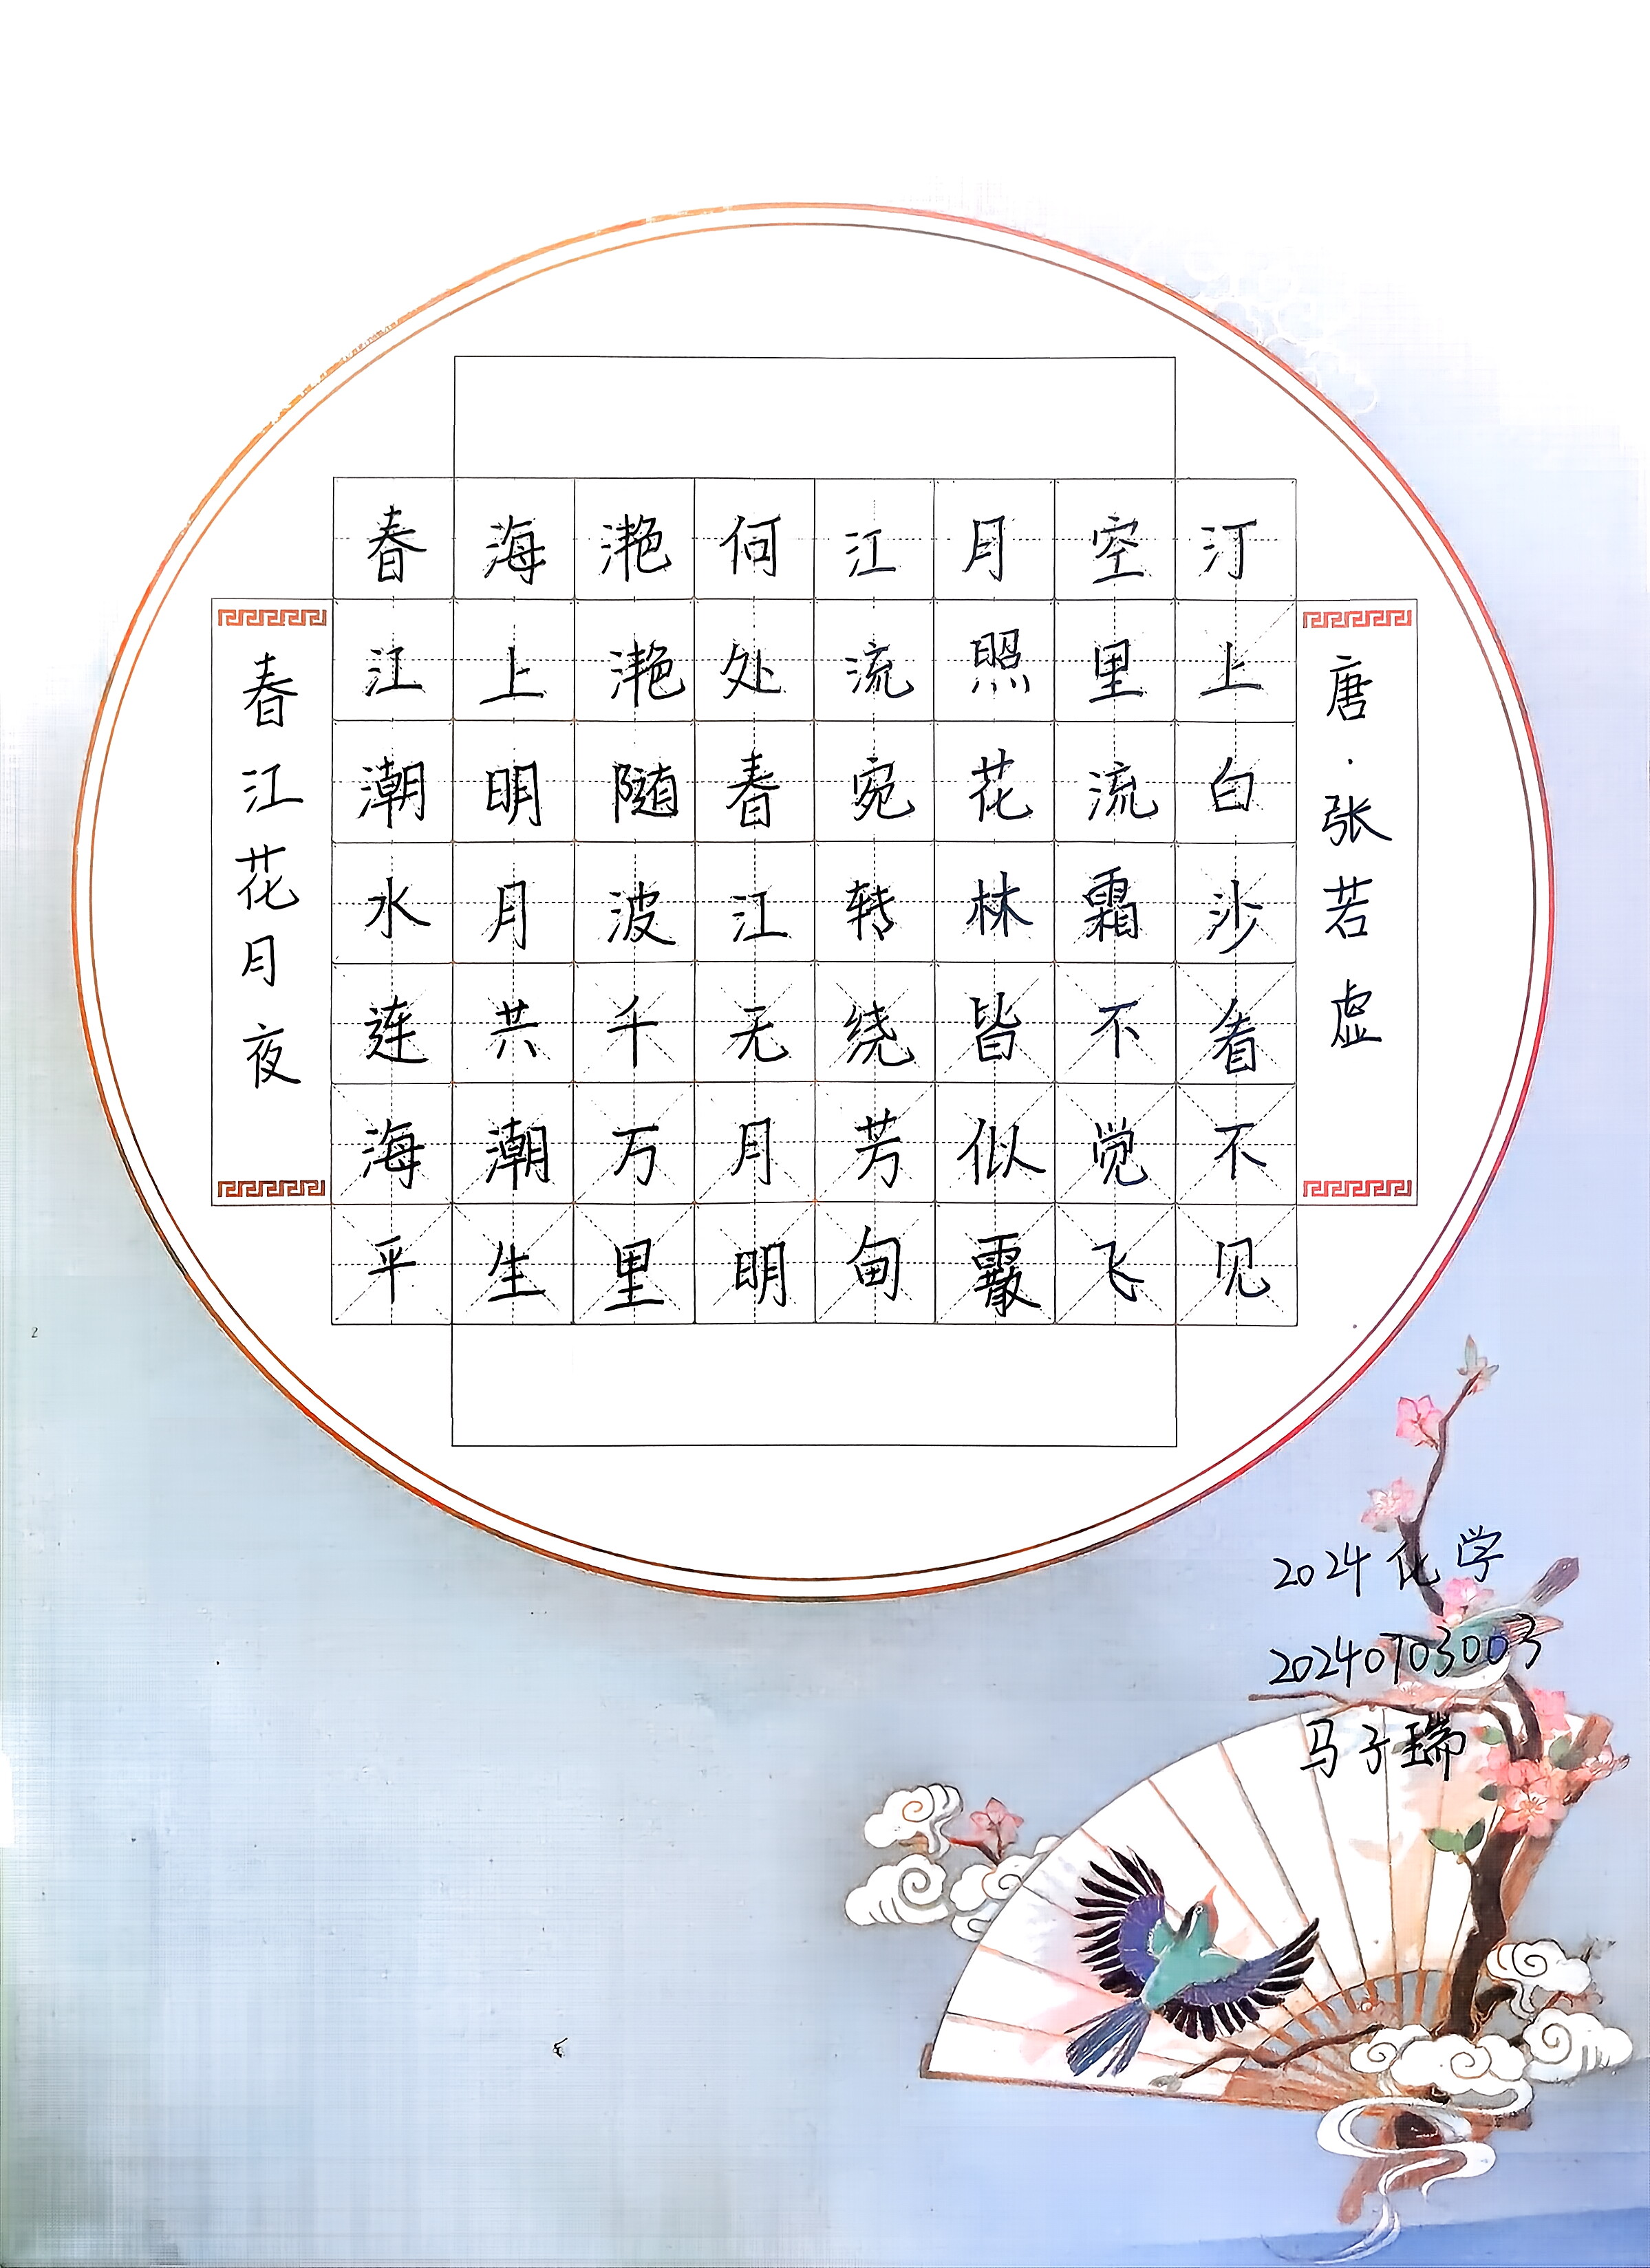 春江花月夜
春江潮水连海平
海上明月共潮生
滟滟随波千万里
何处春江无月明
江流宛转绕芳甸
月照花林皆似霰
空里流霜不觉飞
汀上白沙看不见
唐·张若虚
2024化学
20240703003
马子瑞